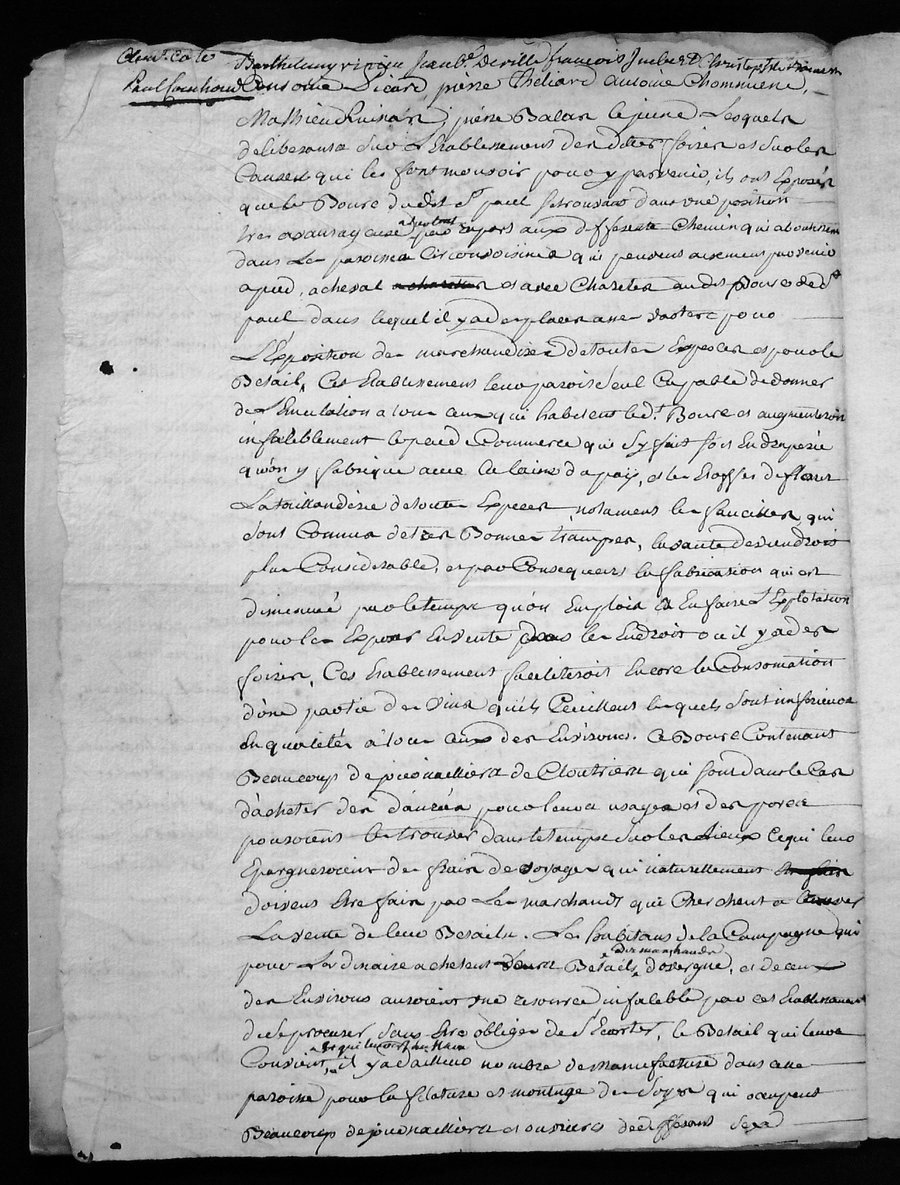 Paul
Barthelemy jean Bte Deville françois
Antoine Sicard pierre Theliard antoine Chommiene,
Mathieu, pierre Balas le jeune Lesquels
deliberants sur L'Etablissement des dittes foires et sur les
Causes qui les font mouvoir pour y parvenir, ils ont Exposés
que le Bourc dudit St paul se trouvant dans une position
tres avantageuse par raport aux differents Chemins qui aboutissent
dans Les paroisses Circonvoisines qui peuvent aisement parvenir
a pied, a cheval et avec Charetes audit Bourc de St
paul dans lequel il y a des places asses vastes pour
L'Exposition des marchandises de toutes Especes et pour le
Betail, Cet Etablissement leur paroit seul Capable de donner
de L'Emulation a tous ceux qui habitent led.t Bourc et augmenteroit
infaliblement le peu de Commerce qui s'y fait soit En draperie
qu'on y fabrique avec la laine du païs, et les Etoffes de
La taillanderie de toutes Especes, notament les faucilles, qui
sont Connues de tres Bonnes trampes, la vante deviendroit
plus Considerable, et par Consequent la fabrication qui est
diminuée par le temps qu'on Emploie a En faire L'Explotation
pour les Exposer En vente dans les Endroits ou il y a des
foires, Cet Etablissement faciliteroit Encore la Consomation
d'une partie des vins qu'ils Ceuillent lesquels sont inferieurs
En qualité a tous ceux des Environs. Ce Bourc Contenant
Beaucoup de journalliers de Cloutriers qui sont dans le Cas
d'acheter des danrées pour leurs usages et des porcs
pouroient le trouver dans le temps sur les Lieux Ce qui leur
Epargneroient des frais de voyages qui naturellement
doivent Etre fais par Les marchands qui Cherchent a trouver
La vente de leur Betails. Les habitans de la Campagne qui
pour L'ordinaire achetent Betails des marchands d'overgne, et de ceux
des Environs auroient une resource infalible par cet Etablissement
de se procurer, sans Etre obliger de s'Ecarter, le Betail qui leurs
Convient, il y a d'ailleurs nombre de manufacture dans cette
paroisse pour la filature et montage des soyes qui occupent
Beaucoup de journalliers et ouvriers de differents sexes